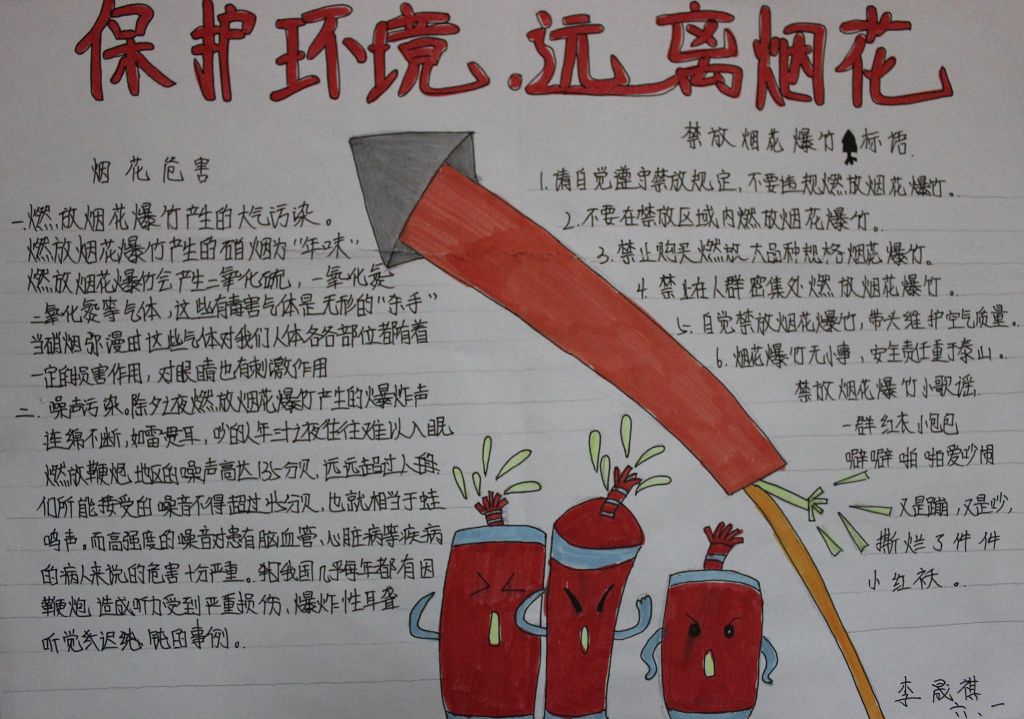 保护环境.远离烟花
烟花危害
一.燃放烟花爆竹产生的大气污染。
燃放烟花爆竹产生的硝烟为“年味”
燃放烟花爆竹会产生二氧化硫，一氧化氮
二氧化氮等气体，这些有毒害气体是无形的“杀手”
当硝烟弥漫时这些气体对我们人体各各部位都有着
一定的损害作用，对眼睛也有刺激作用
二.噪声污染。除夕之夜燃放烟花爆竹产生的爆炸声
连绵不断，如雷贯耳，吵的人年三十之夜往往难以入眠
燃放鞭炮地区的噪声高达135分贝，远远超过人
们所能接受的噪音不得超过45分贝，也就相当于蛙
鸣声。而高强度的噪音对患有脑血管、心脏病等疾病
的病人来说的危害十分严重。我国几乎每年都有因
鞭炮造成听力受到严重损伤、爆炸性耳聋
听觉迟钝的事例。
禁放烟花爆竹标语.
1.请自觉遵守禁放规定，不要违规燃放烟花爆竹。
2.不要在禁放区域内燃放烟花爆竹。
3.禁止购买燃放大品种规格烟花爆竹。
4.禁止在人群密集处燃放烟花爆竹。
5.自觉禁放烟花爆竹，带头维护空气质量。
6.烟花爆竹无小事，安全责任重于泰山。
禁放烟花爆竹小歌谣.
一群红衣小炮包
噼噼啪啪爱吵闹
又是蹦，又是吵，
撕烂了件件
小红袄。
李晟祺
六、一